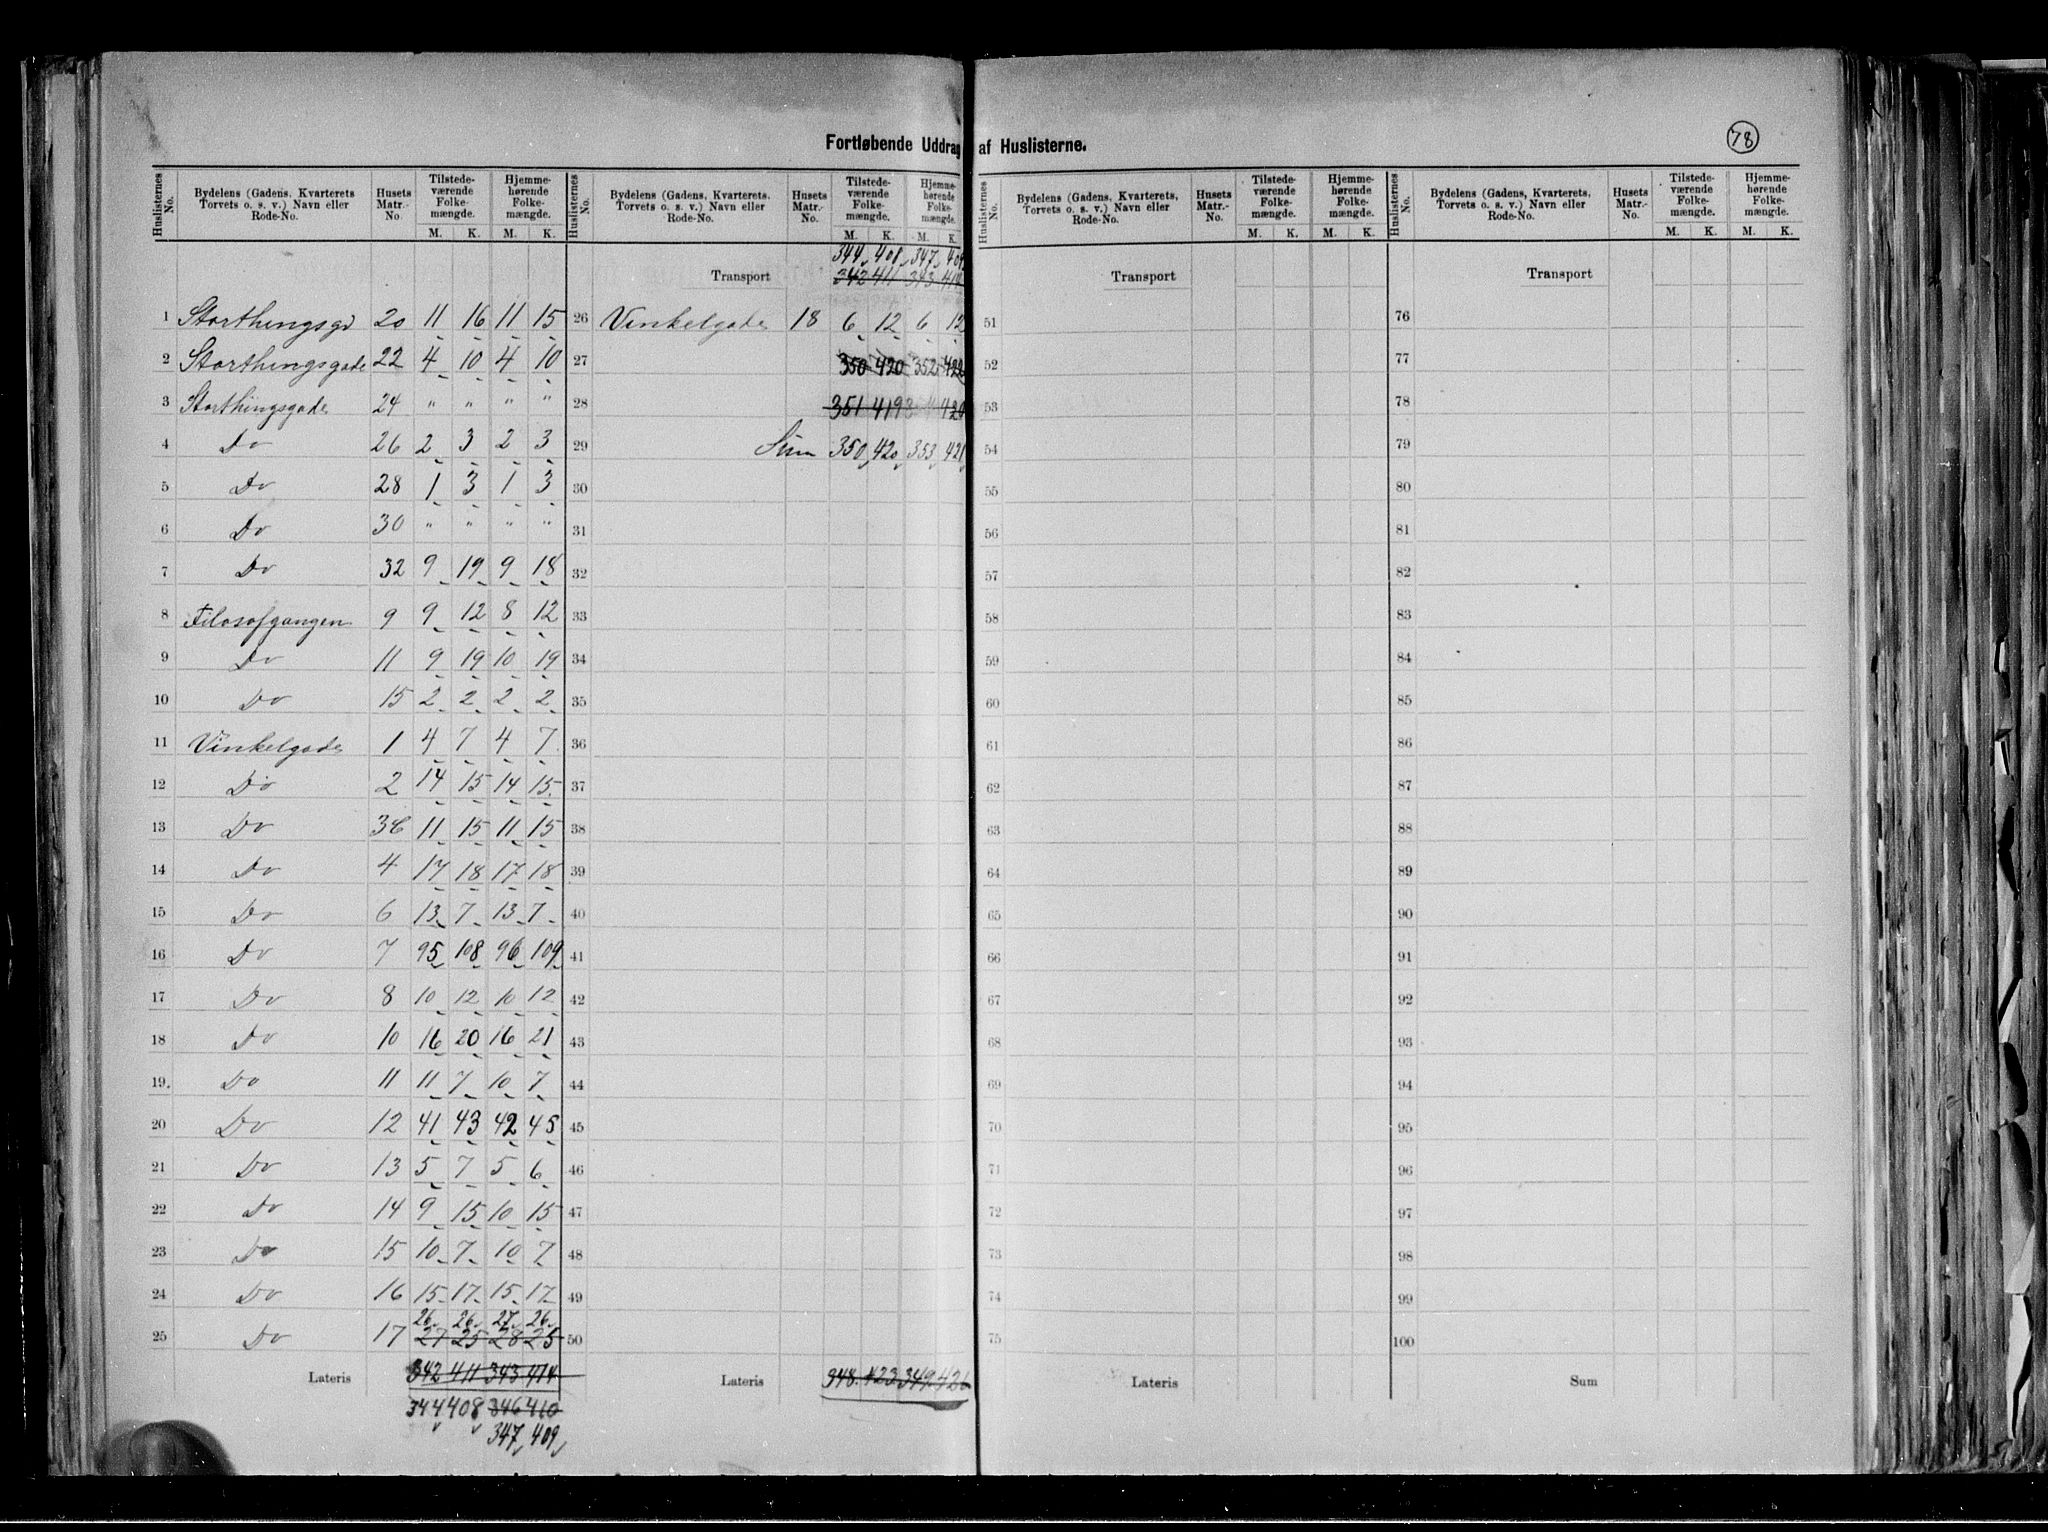 Fortløbende Uddrag af Huslisterne.
78
Huslisternes No. | Bydelens (Gadens, Kvarterets, Torvets o. s. v.) Navn eller Rode-No. | Husets Matr.-No. | Tilstede-værende Folke-mængde. M. K. | Hjemme-hørende Folke-mængde. M. K.
1 Storthingsgd 20 11 16 11 15
2 Storthingsgade 22 4 10 4 10
3 Storthingsgade 24 " " " "
4 Do 26 2 3 2 3
5 Do 28 1 3 1 3
6 Do 30 " " " "
7 Do 32 9 19 9 18
8 Filosofgangen 9 9 12 8 12
9 Do 11 9 19 10 19
10 Do 15 2 2 2 2
11 Vinkelgade 1 4 7 4 7
12 Do 2 14 15 14 15
13 Do 11 15 11 15
14 Do 4 17 18 17 18
15 Do 6 13 7 13 7
16 Do 7 95 108 96 109
17 Do 8 10 12 10 12
18 Do 10 16 20 16 21
19. Do 11 11 7 10 7
20 Do 12 41 43 42 45
21 Do 13 5 7 5 6
22 Do 14 9 15 10 15
23 Do 15 10 7 10 7
24 Do 16 15 17 15 17
26 26 27 26
25 Do 17 27 25 28 25
Lateris 342 411 343 414
344 408 346 410
347 409
Huslisternes No. | Bydelens (Gadens, Kvarterets, Torvets o. s. v.) Navn eller Rode-No. | Husets Matr.-No. | Tilstede-værende Folke-mængde. M. K. | Hjemme-hørende Folke-mængde. M. K.
344 408 347 409
Transport 342 411 343 414
26 Vinkelgade 18 6 12 6 12
27 350 420 352 422
28 351 419 420
29 Sum 350 420 353 421
30
31
32
33
34
35
36
37
38
39
40
41
42
43
44
45
46
47
48
49
50
Lateris 348 423 349 426
Huslisternes No. | Bydelens (Gadens, Kvarterets, Torvets o. s. v.) Navn eller Rode-No. | Husets Matr.-No. | Tilstede-værende Folke-mængde. M. K. | Hjemme-hørende Folke-mængde. M. K.
Transport
51
52
53
54
55
56
57
58
59
60
61
62
63
64
65
66
67
68
69
70
71
72
73
74
75
Lateris
Huslisternes No. | Bydelens (Gadens, Kvarterets, Torvets o. s. v.) Navn eller Rode-No. | Husets Matr.-No. | Tilstede-værende Folke-mængde. M. K. | Hjemme-hørende Folke-mængde. M. K.
Transport
76
77
78
79
80
81
82
83
84
85
86
87
88
89
90
91
92
93
94
95
96
97
98
99
100
Sum